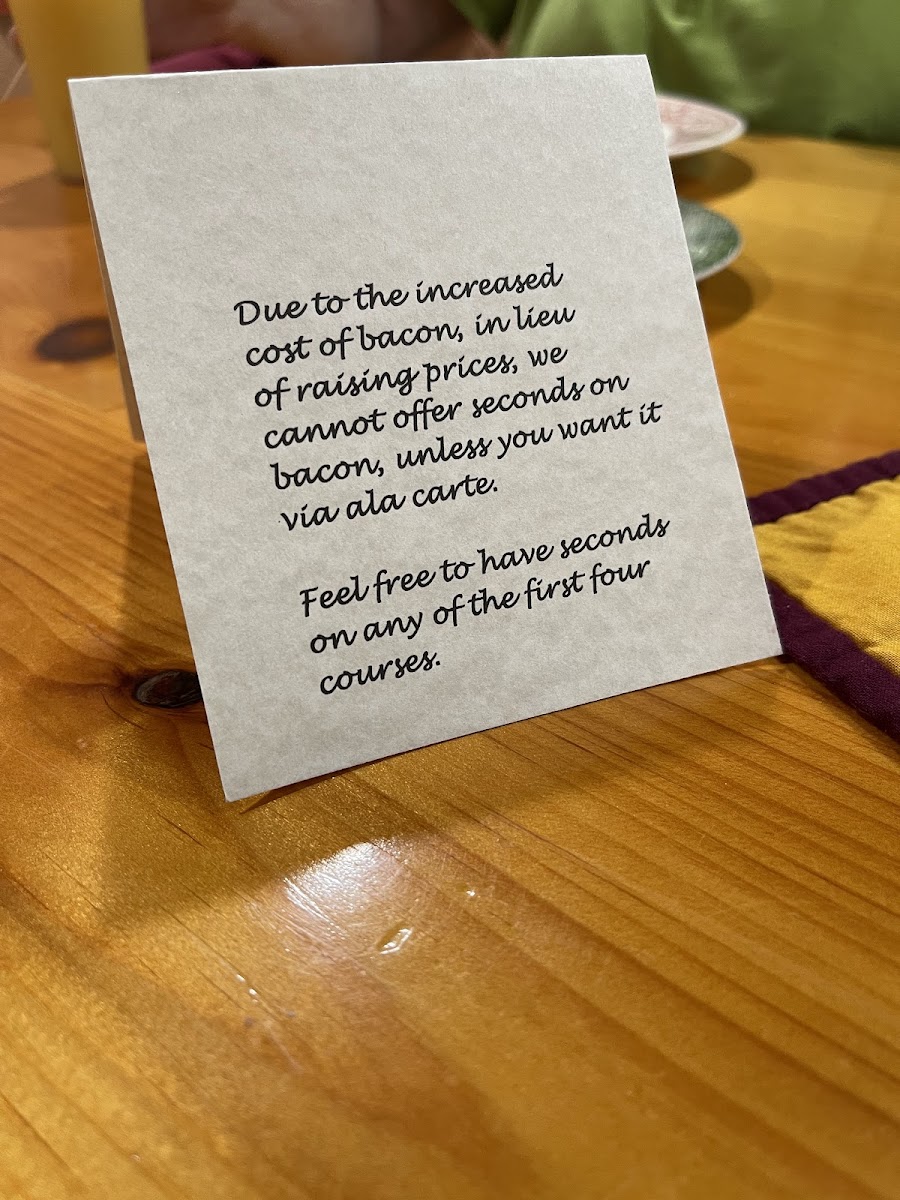 Due to the increased
cost of bacon, in lieu
of raising prices, we
cannot offer seconds on
bacon, unless you want it
via ala carte.
Feel free to have seconds
on any of the first four
courses.